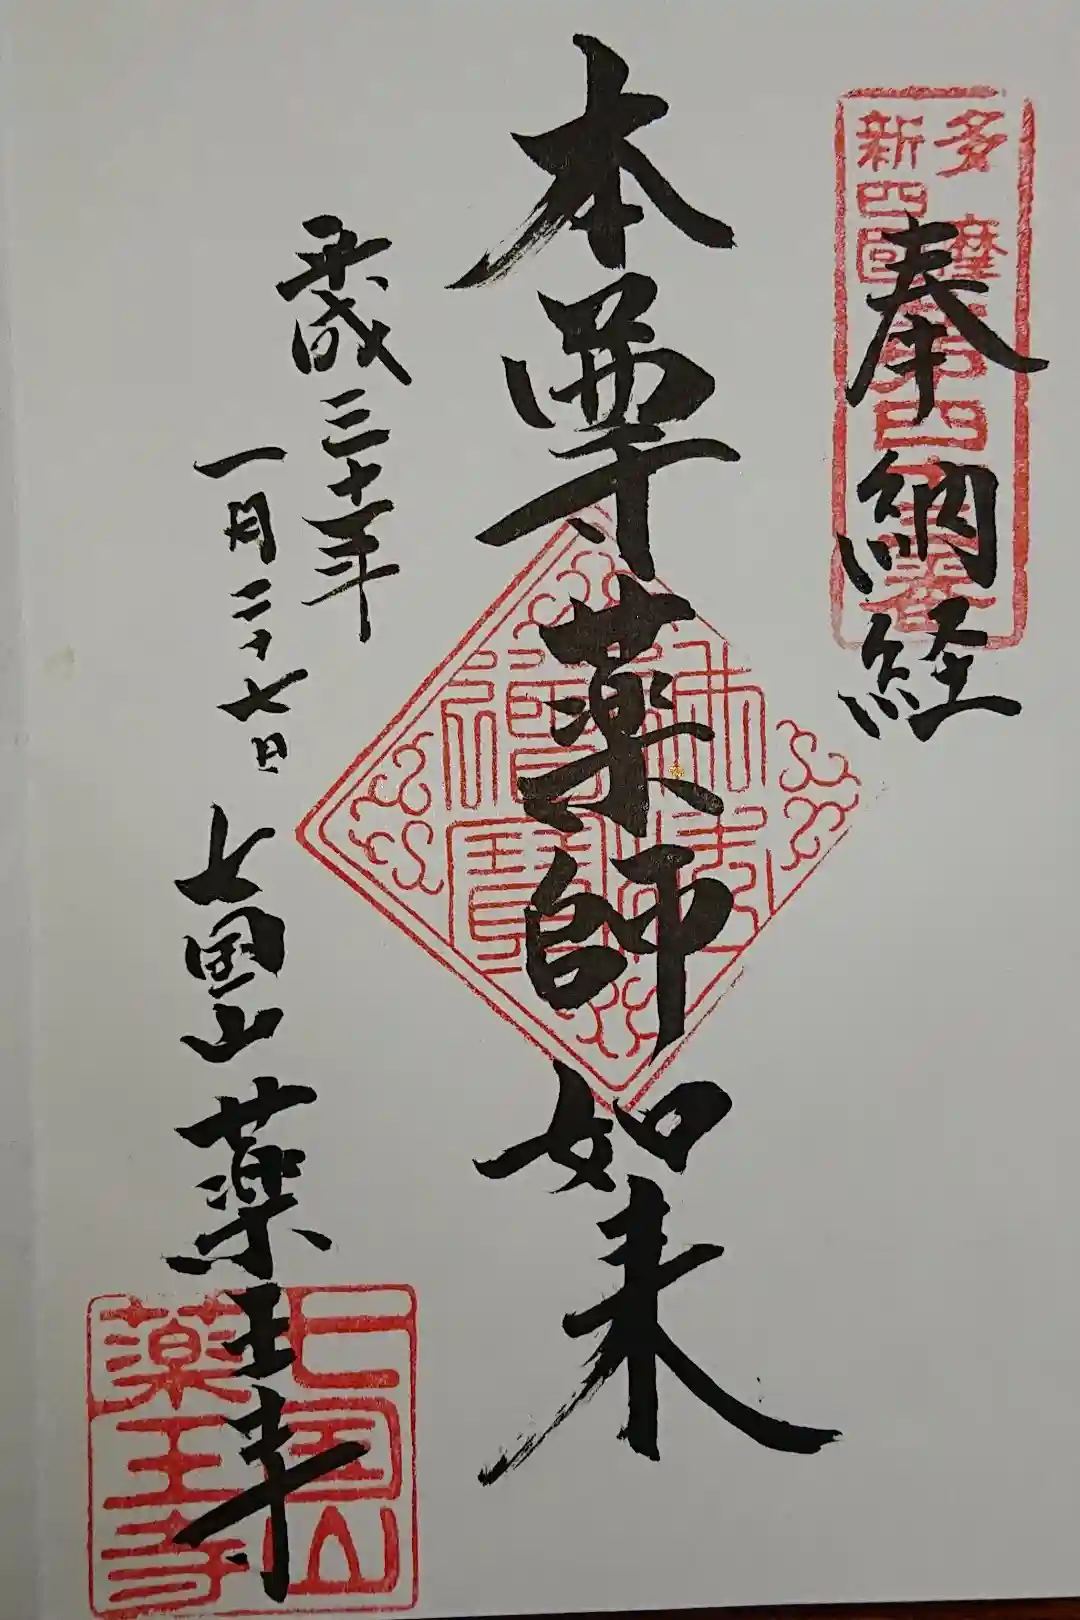 多摩
新四國
奉納経
本尊薬師如来
佛法僧寶
平成三十年
一月二十七日
七国山薬王寺
七国山
薬王寺